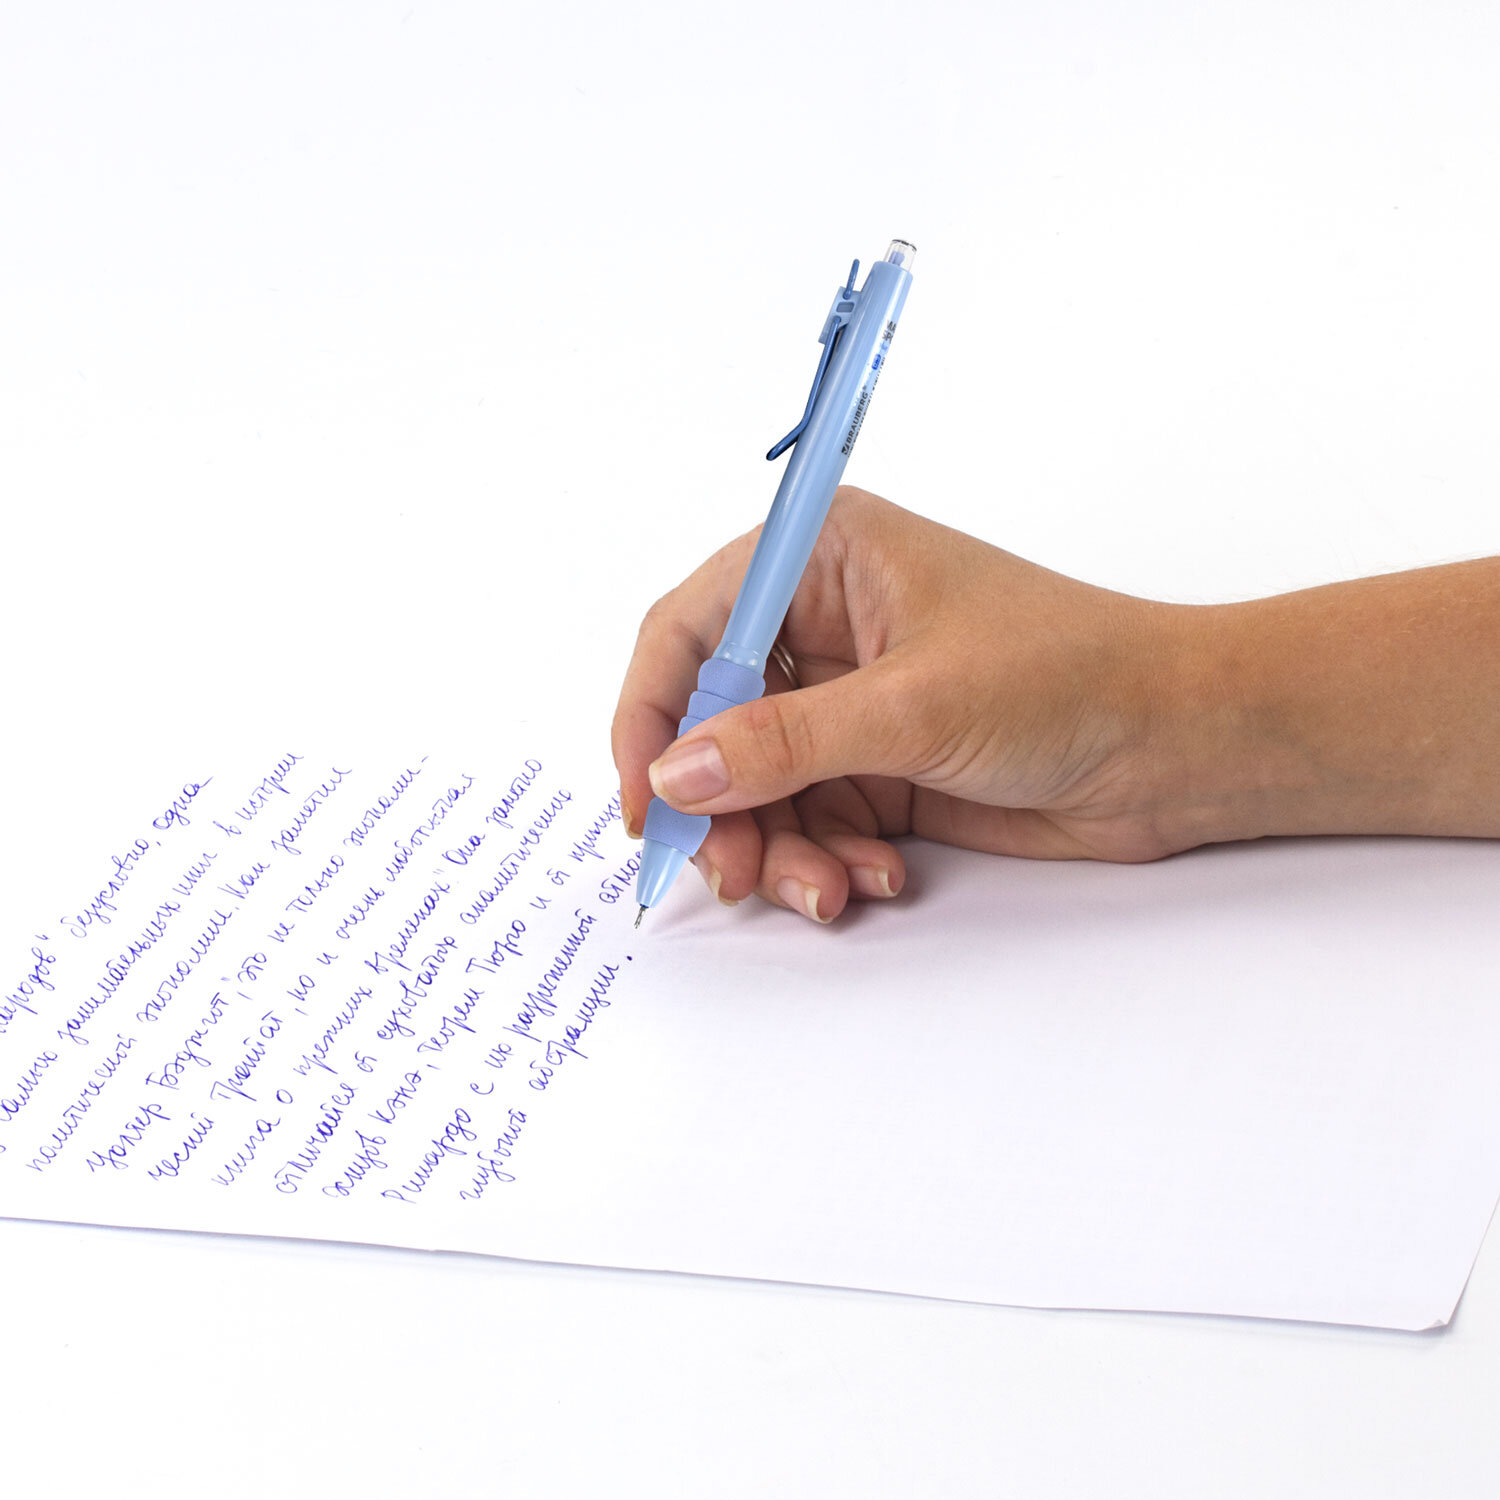 народов" безусловно, одна
самых занимательных книг в истории
политической экономии. Как заметил
Уолтер Бэджгот, "это не только экономи-
ческий трактат, но и очень любопытная
книга о прежних временах". Она заметно
отличается от суховатых аналитических
Кэнэ, теорем Тюрго и от
Рикардо с их разреженной атмос
глубокой абстракции.
BRAUBERG